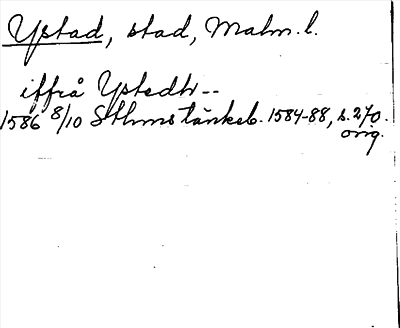 Ystad, stad, Malm. l.
iffrå Ystedh --
1586 8/10 Sthms tänkeb. 1584-88, s. 270.
orig.